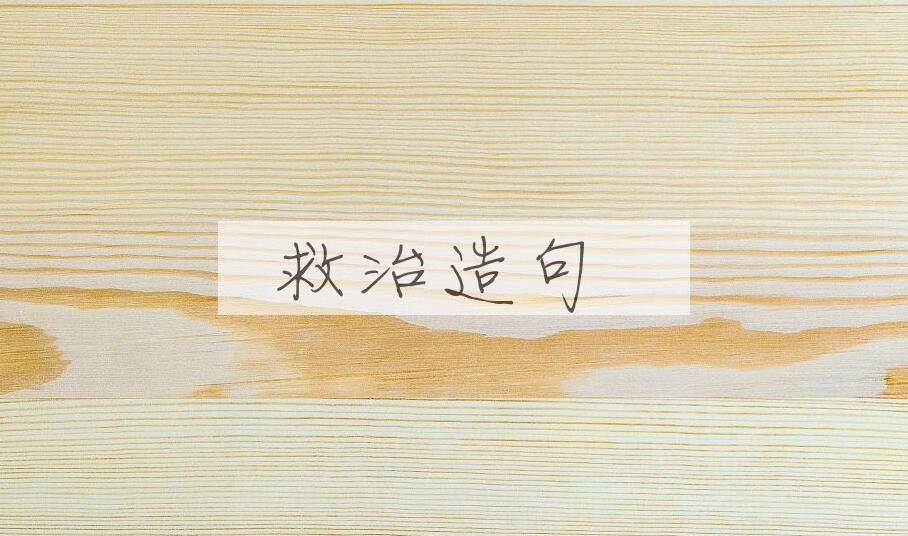 救治造句